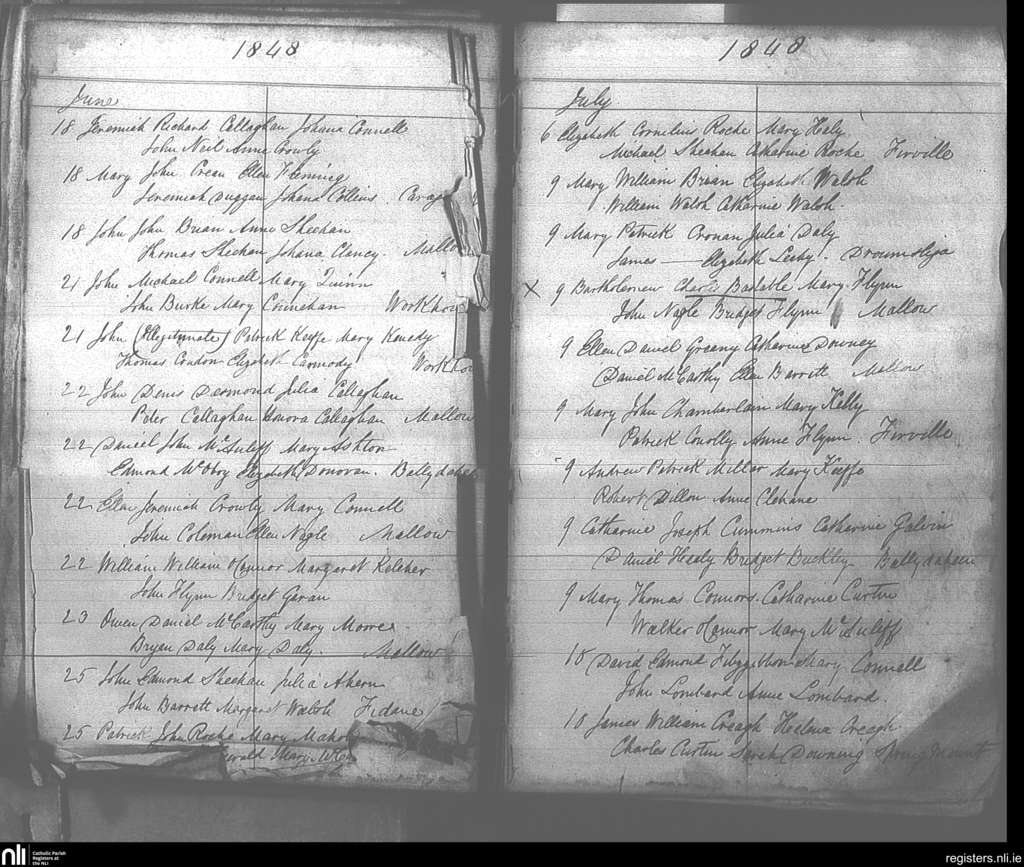 1848
June
18 Jeremiah Richard Callaghan Johana Connell
John Neil Anne Crowly
18 Mary John Crean Ellen Fleming
Jeremiah Duggan Johana Collins
18 John John Brian Anne Sheehan
Thomas Sheehan Johana Clancy. Mallow
21 John Michael Connell Mary Quinn
John Burke Mary WorkHouse
21 John (Illegitimate) Patrick Keeffe Mary Kenedy
Thomas Condon Elizabeth Carmody WorkHou
22 John Denis Desmond Julia Callaghan
Peter Callaghan Honora Callaghan Mallow
22 Daniel John McAuliff Mary Ashton
Edmond Elizabeth Donovan. Ballydahe
22 Ellen Jeremiah Crowly Mary Connell
John Coleman Ellen Nagle Mallow
22 William William O'Connor Margaret Keleher
John Flynn Bridget Gavan
23 Owen Daniel McCarthy Mary Moore
Bryan Daly Mary Daly. Mallow
25 John Edmond Sheehan Julia Ahern
John Barrett Margaret Walsh Fidane
25 Patrick John Roche Mary Mahon
Mary
1848
July
6 Elizabeth Cornelius Roche Mary Haly
Michael Sheehan Catharine Roche Firville
9 Mary William Brean Elizabeth Walsh
William Walsh Catharine Walsh.
9 Mary Patrick Cronan Julia Daly
James — Elizabeth Leahy. Droumsliga
X 9 Bartholemew Charles Bastable Mary Flynn
John Nagle Bridget Flynn Mallow
9 Ellen Daniel Greany Catharine Downey
Daniel McCarthy Ellen Barrett Mallow
9 Mary John Chamberlain Mary Kelly
Patrick Conolly Anne Flynn. Firville
9 Andrew Patrick Millar Mary Keeffe
Robert Dillon Anne Clehane
9 Catharine Joseph Cummins Catharine Galvin
Daniel Healy Bridget Buckley Ballydaheen
9 Mary Thomas Connors Catharine Curtin
Walker O'Connor Mary McAuliff
10 David Edmond Fitzgibbon Mary Connell
John Lombard Anne Lombard.
10 James William Creagh Helena Creagh
Charles Curtin Sarah Downing Spring Mount
nli Catholic Parish Registers at the NLI
registers.nli.ie